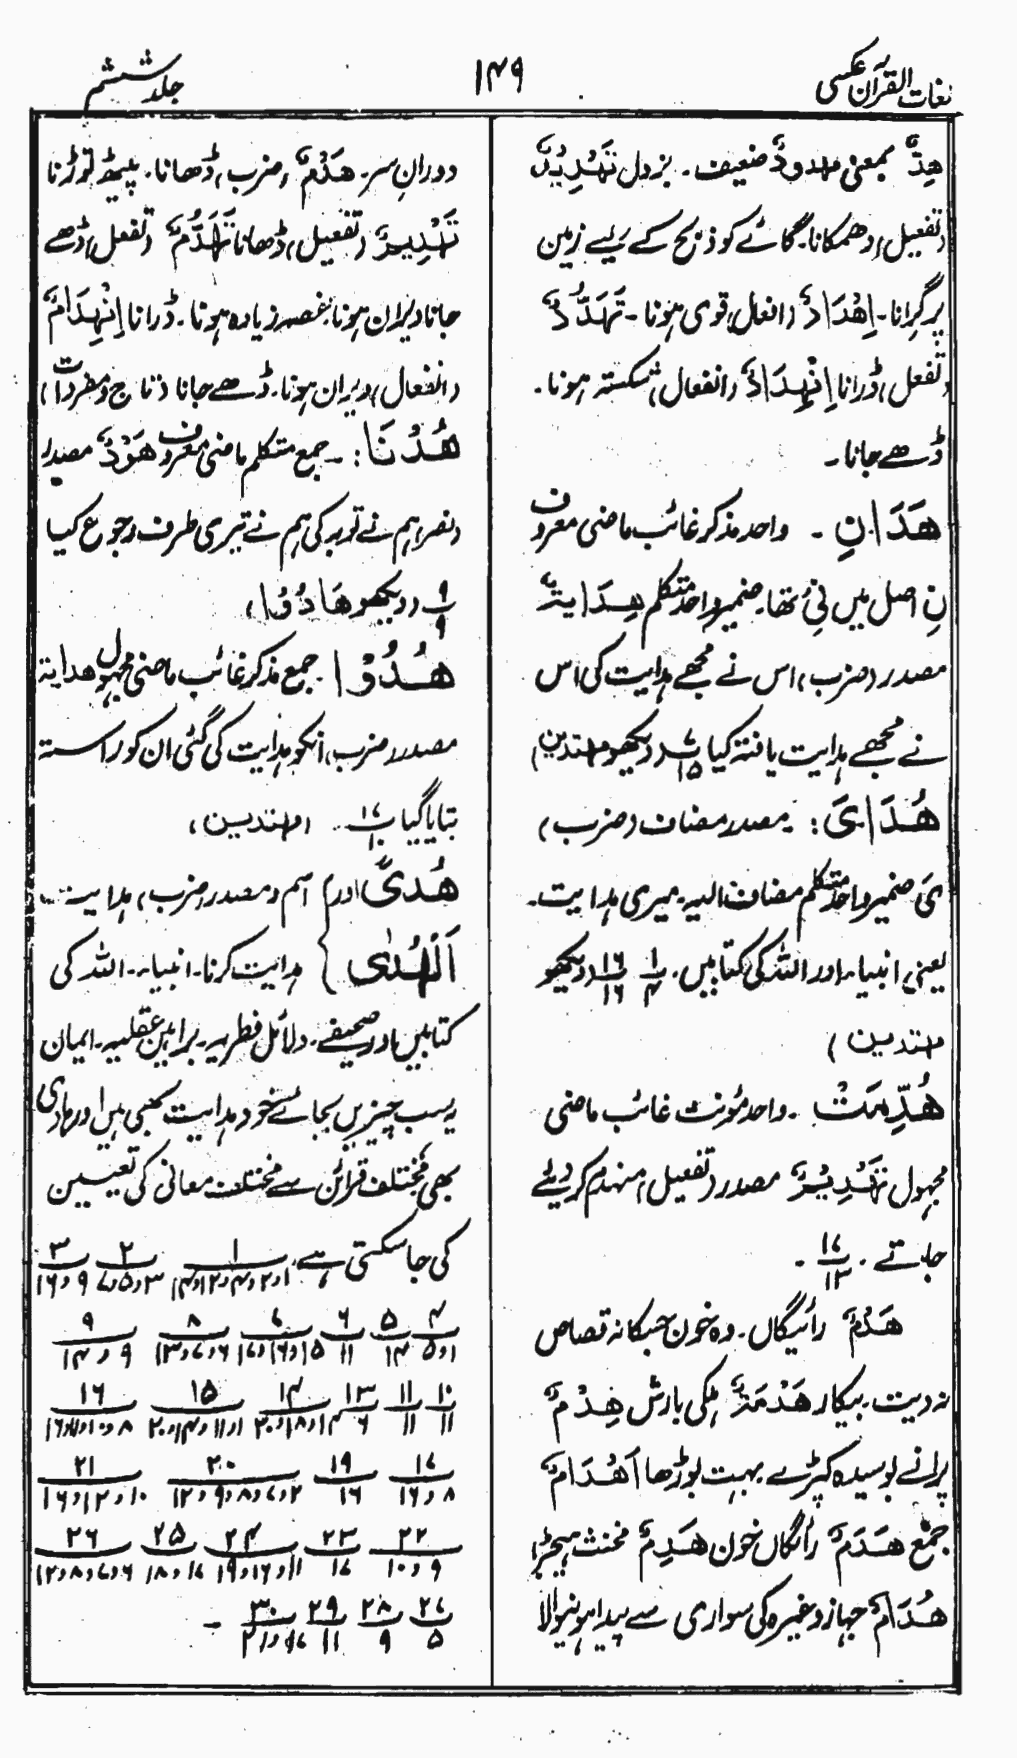 لغات القرآن عکسی
۱۴۹
جلد ششم
ھِدٌّ بمعنی مہدودٌ ضعیف۔ بزدل تَھْدِیْدٌ
(تفعیل) دھمکانا۔ گائے کو ذبح کے لیے زمین
پر گرانا۔ اِھْدَادٌ (افعال) قوی ہونا۔ تَھَدُّدٌ
(تفعل) ڈرانا اِنْھِدَادٌ (انفعال) شکستہ ہونا۔
ڈھے جانا۔
ھَدَانِ ۔ واحد مذکر غائب ماضی معروف
نِ اصل میں نِیْ تھا۔ ضمیر واحد متکلم ھِدَایَۃٌ
مصدر (ضرب) اس نے مجھے ہدایت کی اس
نے مجھے ہدایت یافتہ کیا ۷/۱۵ (دیکھو مہتدین)
ھُدَایَ: مصدر مضاف (ضرب)
یَ ضمیر واحد متکلم مضاف الیہ۔ میری ہدایت۔
یعنی انبیاء اور اللہ کی کتابیں۔ ۱/۴ ۱۶/۱۶ (دیکھو
مہتدین)
ھُدِّمَتْ ۔ واحد مؤنث غائب ماضی
مجہول تَھْدِیْمٌ مصدر (تفعیل) منہدم کر دیئے
جاتے ۔ ۱۷/۱۳ ۔
ھَدْمٌ رائیگاں۔ وہ خون جسکا نہ قصاص
نہ دیت۔ بیکار ھَدْمَۃٌ ہلکی بارش ھِدْمٌ
پرانے بوسیدہ کپڑے بہت بوڑھا اَھْدَامٌ
جمع ھَدَمٌ رائگاں خون ھَدِمٌ مخنث ہیجڑا
ھُدَامٌ جہاز وغیرہ کی سواری سے پیدا ہونیوالا
دورانِ سر۔ ھَدْمٌ (ضرب) ڈھانا۔ پیٹھ توڑنا
تَھْدِیْمٌ (تفعیل) ڈھانا تَھَدُّمٌ (تفعل) ڈھے
جانا ویران ہونا۔ غصہ زیادہ ہونا۔ ڈرانا اِنْھِدَامٌ
(انفعال) ویران ہونا۔ ڈھے جانا (تاج و مفردات)
ھُدْنَا: ۔ جمع متکلم ماضی معروف ھَوْدٌ مصدر
(نصر) ہم نے توبہ کی ہم نے تیری طرف رجوع کیا
۹/۹ (دیکھو ھَادُوْا)
ھُدُوْا ۔ جمع مذکر غائب ماضی مجہول ھدایۃ
مصدر (ضرب) انکو ہدایت کی گئی ان کو راستہ
بتایا گیا ۱۷/۱۰ ۔ (مہتدین)
ھُدیً (اور) اسم و مصدر (ضرب) ہدایت۔
اَلْھُدٰی } ہدایت کرنا۔ انبیاء۔ اللہ کی
کتابیں اور صحیفے۔ دلائل فطریہ۔ براہین عقلیہ۔ ایمان
یہ سب چیزیں بجائے خود ہدایت بھی ہیں اور ہادی
بھی مختلف قرائن سے مختلف معانی کی تعیین
کی جاسکتی ہے، ۱/۱و۲و۴و۱۲و۱۴ ۲/۳و۵و۷ ۳/۹و۱۶
۴/۱و۵ ۵/۱۴ ۶/۱۱ ۷/۱۵و۱۶و۱۷ ۸/۶و۷و۱۳ ۹/۹و۱۴
۱۰/۱۱ ۱۱/۱۱ ۱۳/۶ ۱۴/۱و۱۸و۲۰ ۱۵/۱و۱۱و۱۴و۲۰ ۱۶
۱۷/۸و۱۶ ۱۹/۱۶ ۲۰/۲و۷و۸و۹و۱۲ ۲۱/۱۰و۱۲و۱۶
۲۲/۹و۱۰ ۲۳/۱۷ ۲۴/۱۱و۱۶و۱۹ ۲۵/۱۷و۱۸ ۲۶/۶و۷و۸و۱۲
۲۷/۵ ۲۸/۹ ۲۹/۱۱ ۳۰/۱۷و۲۱ ۔